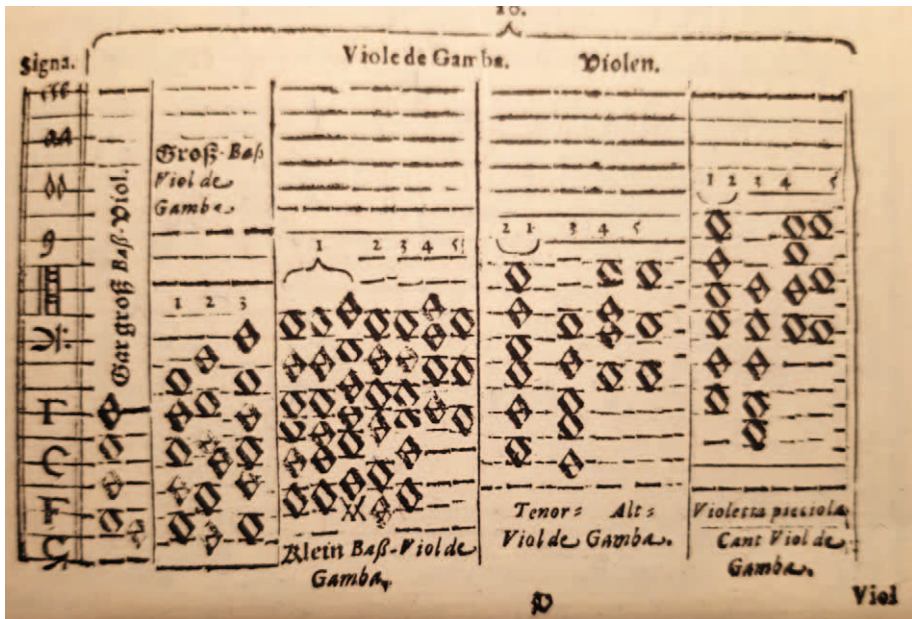 16.
Viole de Gamba. Violen.
Signa.
Gar groß Baß-Viol.
Groß-Baß
Viol de
Gamba.
1 2 3
1 2 3 4 5
Klein Baß-Viol de
Gamba.
2 1 3 4 5
Tenor= Alt=
Viol de Gamba.
1 2 3 4 5
Violetta picciola
Cant Viol de
Gamba.
Viol